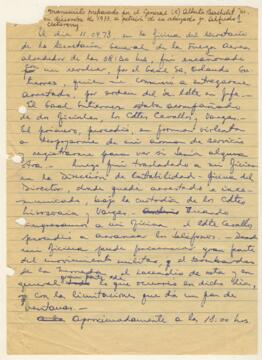 Manuscrito preparado por el General (R) Alberto Bachelet M.
en diciembre de 1973 a petición de su abogado Sr. Alfredo
El día 11.09.73, en la oficina del Secretario
de la Secretaría General de la Fuerza Aérea
alrededor de las 08:30 hrs, fui encañonado
con un revólver, por el Gral Sr. Orlando Gu-
tiérrez, quien me comunicó entregarme
arrestado, por orden del Sr Cdte en Jefe.
El Gral Gutiérrez estaba acompañado
de dos Oficiales, los Cdtes Cevallos, Vargas.
El primero, procedió en forma violenta
a despojarme de mi arma de servicio
y registrarme para ver si tenía alguna
otra. Luego fui trasladado a mi oficina
en la Dirección de Contabilidad - Oficina del
Director, donde quedé arrestado e inco-
municado, bajo la custodia de los Cdtes
y Vargas. Cuando
ingresamos a mi oficina el Cdte Cevallos
procedió a arrancar los teléfonos. Desde
mi oficina pude presenciar gran parte
del movimiento militar, el bombardeo
de la Moneda, el incendio de esta y en
general lo que ocurría en dicho día,
con la limitaciones que da un par de
ventanas.
Aproximadamente a las 18:00 hrs.